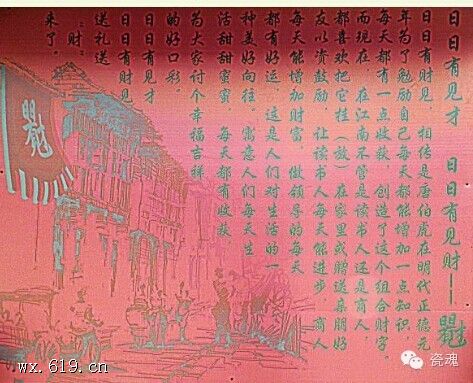 日日有见才 日日有见财——
日日有见财 相传是唐伯虎在明代正德元
年为了勉励自己每天都能增加一点知识，
每天都有一点收获 创造了这个组合财字。
而现在，在江南不管是读书人还是商人，
都喜欢把它挂（放）在家里或赠送亲朋好
友以资鼓励，让读书人每天能进步，商人
每天能增加财富 做领导的每天
都有好运，这是人们对生活的一
种美好向往，寓意人们每天生
活甜甜蜜蜜 每天都有收获，
为大家讨个幸福吉祥
的好口彩。
日日有见才
日日有见财
送礼送
“财”
来了。
wx.619.cn
瓷魂